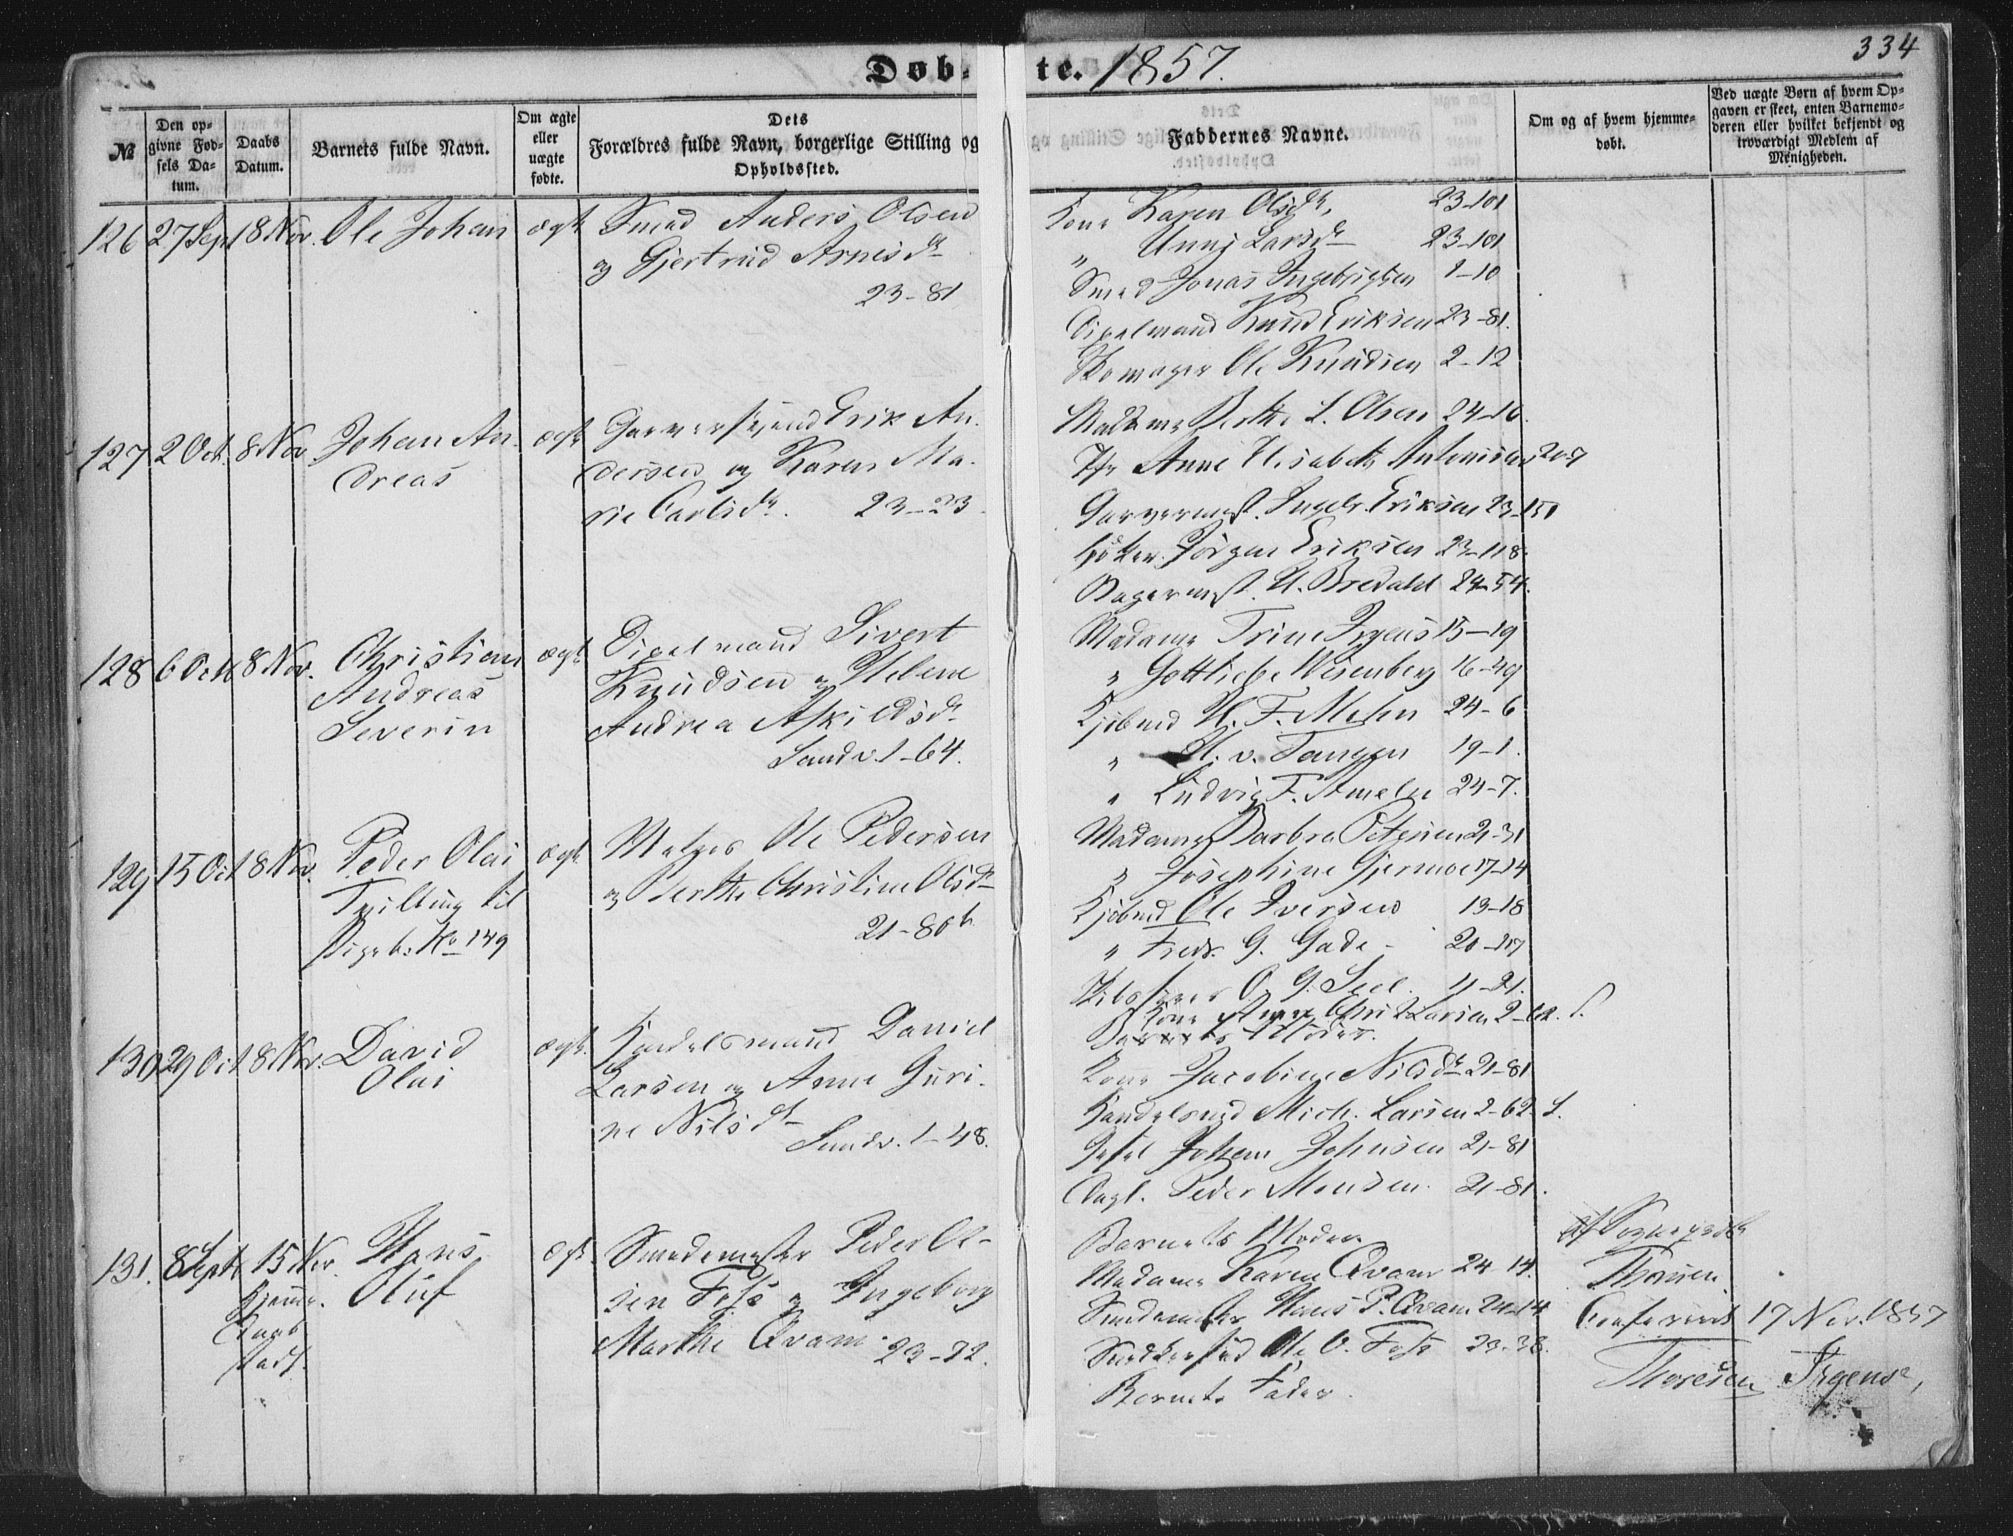 Døb- te. 1857.
334
№
Den op-
givne Fød-
sels Da-
tum.
Daabs
Datum.
Barnets fulde Navn.
Om ægte
eller
uægte
fødte.
Dets
Forældres fulde Navn, borgerlige Stilling og
Opholdssted.
Faddernes Navne.
Om og af hvem hjemme-
døbt.
Ved uægte Børn af hvem Op-
gaven er skeet, enten Barnemo-
deren eller hvilket bekjendt og
troværdigt Medlem af
Menigheden.
126 27 Sept 8 Nov. Ole Johan ægt
Smed Anders Olsen
og Gjertrud Arnesdr
23-81
Kone Karen Olsdr, 23-101
" Unni Larsdr 23-101
Smed Jonas Ingebrigtsen 1-10
Dixelmand Knud Eriksen 23-81.
Skomager Ole Knudsen 2-12
127 2 Oct. 8 Nov Johan An-
dreas
ægt
Garversvend Erik An-
dersen og Karen Ma-
rie Carlsdr. 23-23.
Madame Berthe L. Olsen 24-16.
Pige Anne Elisabeth Antonisen 20-7
Garvermst. Ingebr. Eriksen 23-151
Jörgen Eriksen 23-118.
Bagermst. H. Bredahl 24-54.
128 6 Octb 8 Nov. Christian
Andreas
Severin
ægt
Dixelmand Sivert
Knudsen og Helene
Andrea Askildsdr
Sandv. 1-64.
Madame Trine Irgens 15-19
" Gottliebe Wesenberg 16-49
Kjøbmd H. F. Mehn 24-6
" H. v. Tangen 19-1.
" Ludvig F. Ameln 24-7.
129 15 Oct 8 Nov. Peder Olai
Tvilling til
Pigeb. No 149
ægt
Ole Pedersen
og Berthe Christine Olsdr
21-80b
Madame Barbra Petersen 21-31
" Josephine Gjermoe 17-14
Kjøbmd Ole Iversen 13-18
" Fredr. G. Gade
O. G. Seel. 11-21.
130 29 Oct 8 Nov. David
Olai
ægt.
Handelsmand Daniel
Larsen og Anne Guri-
ne Nilsdr
Sandv. 1-48.
Kone Larsen 2-62. S.
Barnets Moder.
Kone Jacobine Nilsdr 21-81
Handelsmd Mich. Larsen 2-62 S.
Johan Johnsen 21-81
Dagl. Peder Monsen 21-81.
131. 8 Septb 15 Nov. Hans
Oluf
Hjemme-
Daab
stadf.
ægt
Smedemester Peder Ol-
sen Foss og Ingeborg
Marthe Qvam. 23-32.
Barnets Moder.
Madame Karen Qvam 24-14.
Smedemester Hans P. Qvam 24-14
Ole O. Foss 23-38.
Barnets Fader.
af Sognepræst
Thoresen
Confereret 17 Nov. 1857
Thoresen Irgens,